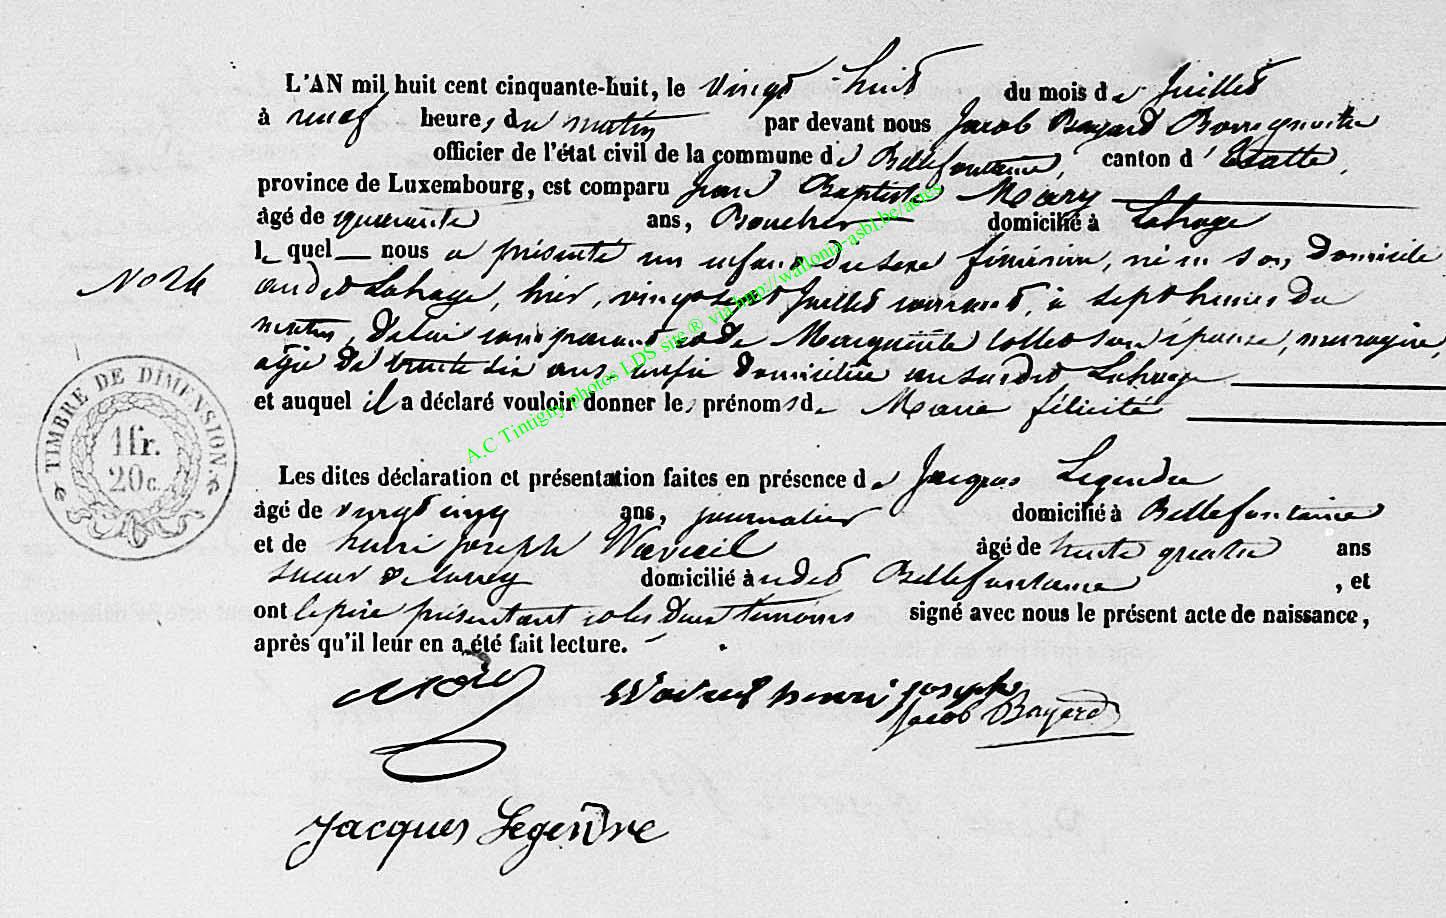 L'AN mil huit cent cinquante-huit, le vingt huit du mois de Juillet
à neuf heures du matin par devant nous Jacob Bayard Bourgmestre
officier de l'état civil de la commune de Bellefontaine, canton d'Etalle,
province de Luxembourg, est comparu Jean Baptiste Mary
âgé de quarante ans, Boucher domicilié à Lahage
lequel nous a présenté un enfant du sexe féminin, né en son domicile
No 24
audit Lahage, hier, vingt sept Juillet courant, à sept heures du
matin, de lui comparant et de Marguerite Collet son épouse, menagère,
agée de trente six ans, enfin domiciliée au susdit Lahage
et auquel il a déclaré vouloir donner les prénoms de Marie félicité
TIMBRE DE DIMENSION.
1fr.
20c.
Les dites déclaration et présentation faites en présence de Jacques Legendre
âgé de vingt cinq ans, journalier domicilié à Bellefontaine
et de henri joseph Wavreil âgé de trente quatre ans
domicilié à udit Bellefontaine, et
ont le père présentant et les deux témoins signé avec nous le présent acte de naissance,
après qu'il leur en a été fait lecture.
Wavreil henri joseph
Jacob Bayard
Jacques Legendre
A.C Tintigny photos LDS site ® via http://wallonia-asbl.be/actes